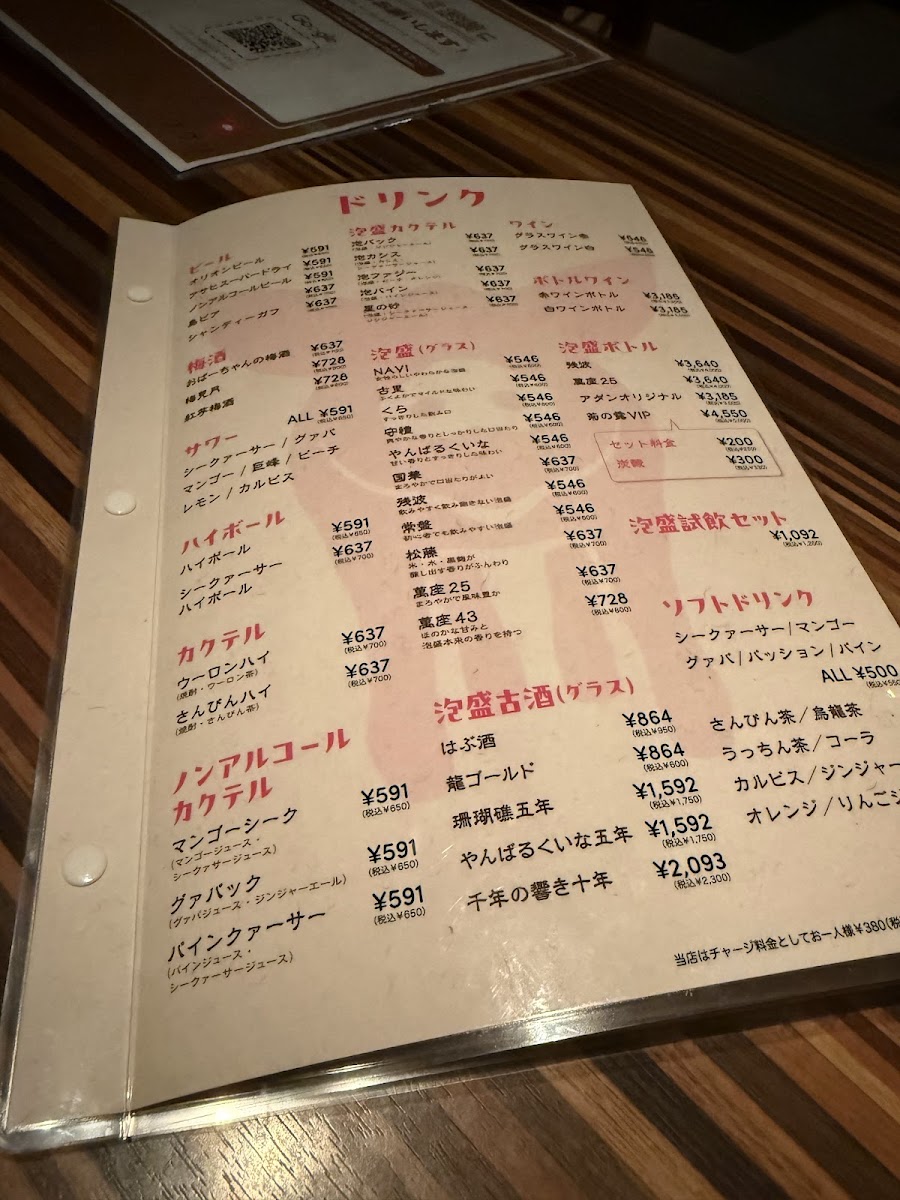 ドリンク
ビール
オリオンビール ¥591
アサヒスーパードライ ¥591
ノンアルコールビール ¥591
島ビア ¥637
シャンディーガフ ¥637
梅酒
おばーちゃんの梅酒 ¥637
梅見月 ¥728
紅芋梅酒 ¥728
サワー ALL ¥591 (税込¥650)
シークァーサー / グァバ
マンゴー / 巨峰 / ピーチ
レモン / カルピス
ハイボール
ハイボール ¥591 (税込¥650)
シークァーサー ¥637 (税込¥700)
ハイボール
カクテル
ウーロンハイ ¥637 (税込¥700)
(焼酎・ウーロン茶)
さんぴんハイ ¥637 (税込¥700)
(焼酎・さんぴん茶)
ノンアルコール
カクテル
マンゴーシーク ¥591 (税込¥650)
(マンゴージュース・
シークァサージュース)
グァバック ¥591 (税込¥650)
(グァバジュース・ジンジャーエール)
パインクァーサー ¥591 (税込¥650)
(パインジュース・
シークァーサージュース)
泡盛カクテル
泡バック ¥637
泡カシス ¥637
泡ファジー ¥637
泡パイン ¥637
夏の砂 ¥637
泡盛(グラス)
NAVI ¥546
女性らしいやわらかな泡盛
古里 ¥546
ふくよかでマイルドな味わい
くら ¥546
すっきりした飲み口
守禮 ¥546
爽やかな香りとしっかりした口当たり
やんばるくいな ¥546
甘い香りとすっきりした味わい
国華 ¥637 (税込¥700)
まろやかで口当たりがよい
残波 ¥546 (税込¥600)
飲みやすく飲み飽きない泡盛
常盤 ¥546 (税込¥600)
初心者でも飲みやすい泡盛
松藤 ¥637 (税込¥700)
米・水・黒麹が
醸し出す香りがふんわり
萬座25 ¥637 (税込¥700)
まろやかで風味豊か
萬座43 ¥728 (税込¥800)
ほのかな甘みと
泡盛本来の香りを持つ
泡盛古酒(グラス)
はぶ酒 ¥864 (税込¥950)
龍ゴールド ¥864 (税込¥600)
珊瑚礁五年 ¥1,592 (税込¥1,750)
やんばるくいな五年 ¥1,592 (税込¥1,750)
千年の響き十年 ¥2,093 (税込¥2,300)
ワイン
グラスワイン赤 ¥546
グラスワイン白 ¥546
ボトルワイン
赤ワインボトル ¥3,185
白ワインボトル ¥3,185
泡盛ボトル
残波 ¥3,640
萬座25 ¥3,640
アダンオリジナル ¥3,185
菊の露VIP ¥4,550
セット料金 ¥200
炭酸 ¥300
泡盛試飲セット
¥1,092
(税込¥1,200)
ソフトドリンク
シークァーサー/マンゴー
グァバ/パッション/パイン
ALL ¥500
さんぴん茶/烏龍茶
うっちん茶/コーラ
カルピス/ジンジャー
オレンジ/りんご
当店はチャージ料金としてお一人様¥380(税